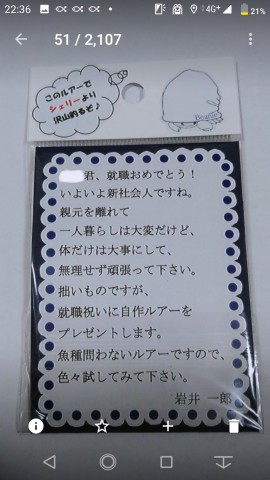 22:36
4G+
21%
51 / 2,107
このルアーで
シェリーより
沢山釣るぞ♪
君、就職おめでとう!
いよいよ新社会人ですね。
親元を離れて
一人暮らしは大変だけど、
体だけは大事にして、
無理せず頑張って下さい。
拙いものですが、
就職祝いに自作ルアーを
プレゼントします。
魚種問わないルアーですので、
色々試してみて下さい。
岩井 一郎